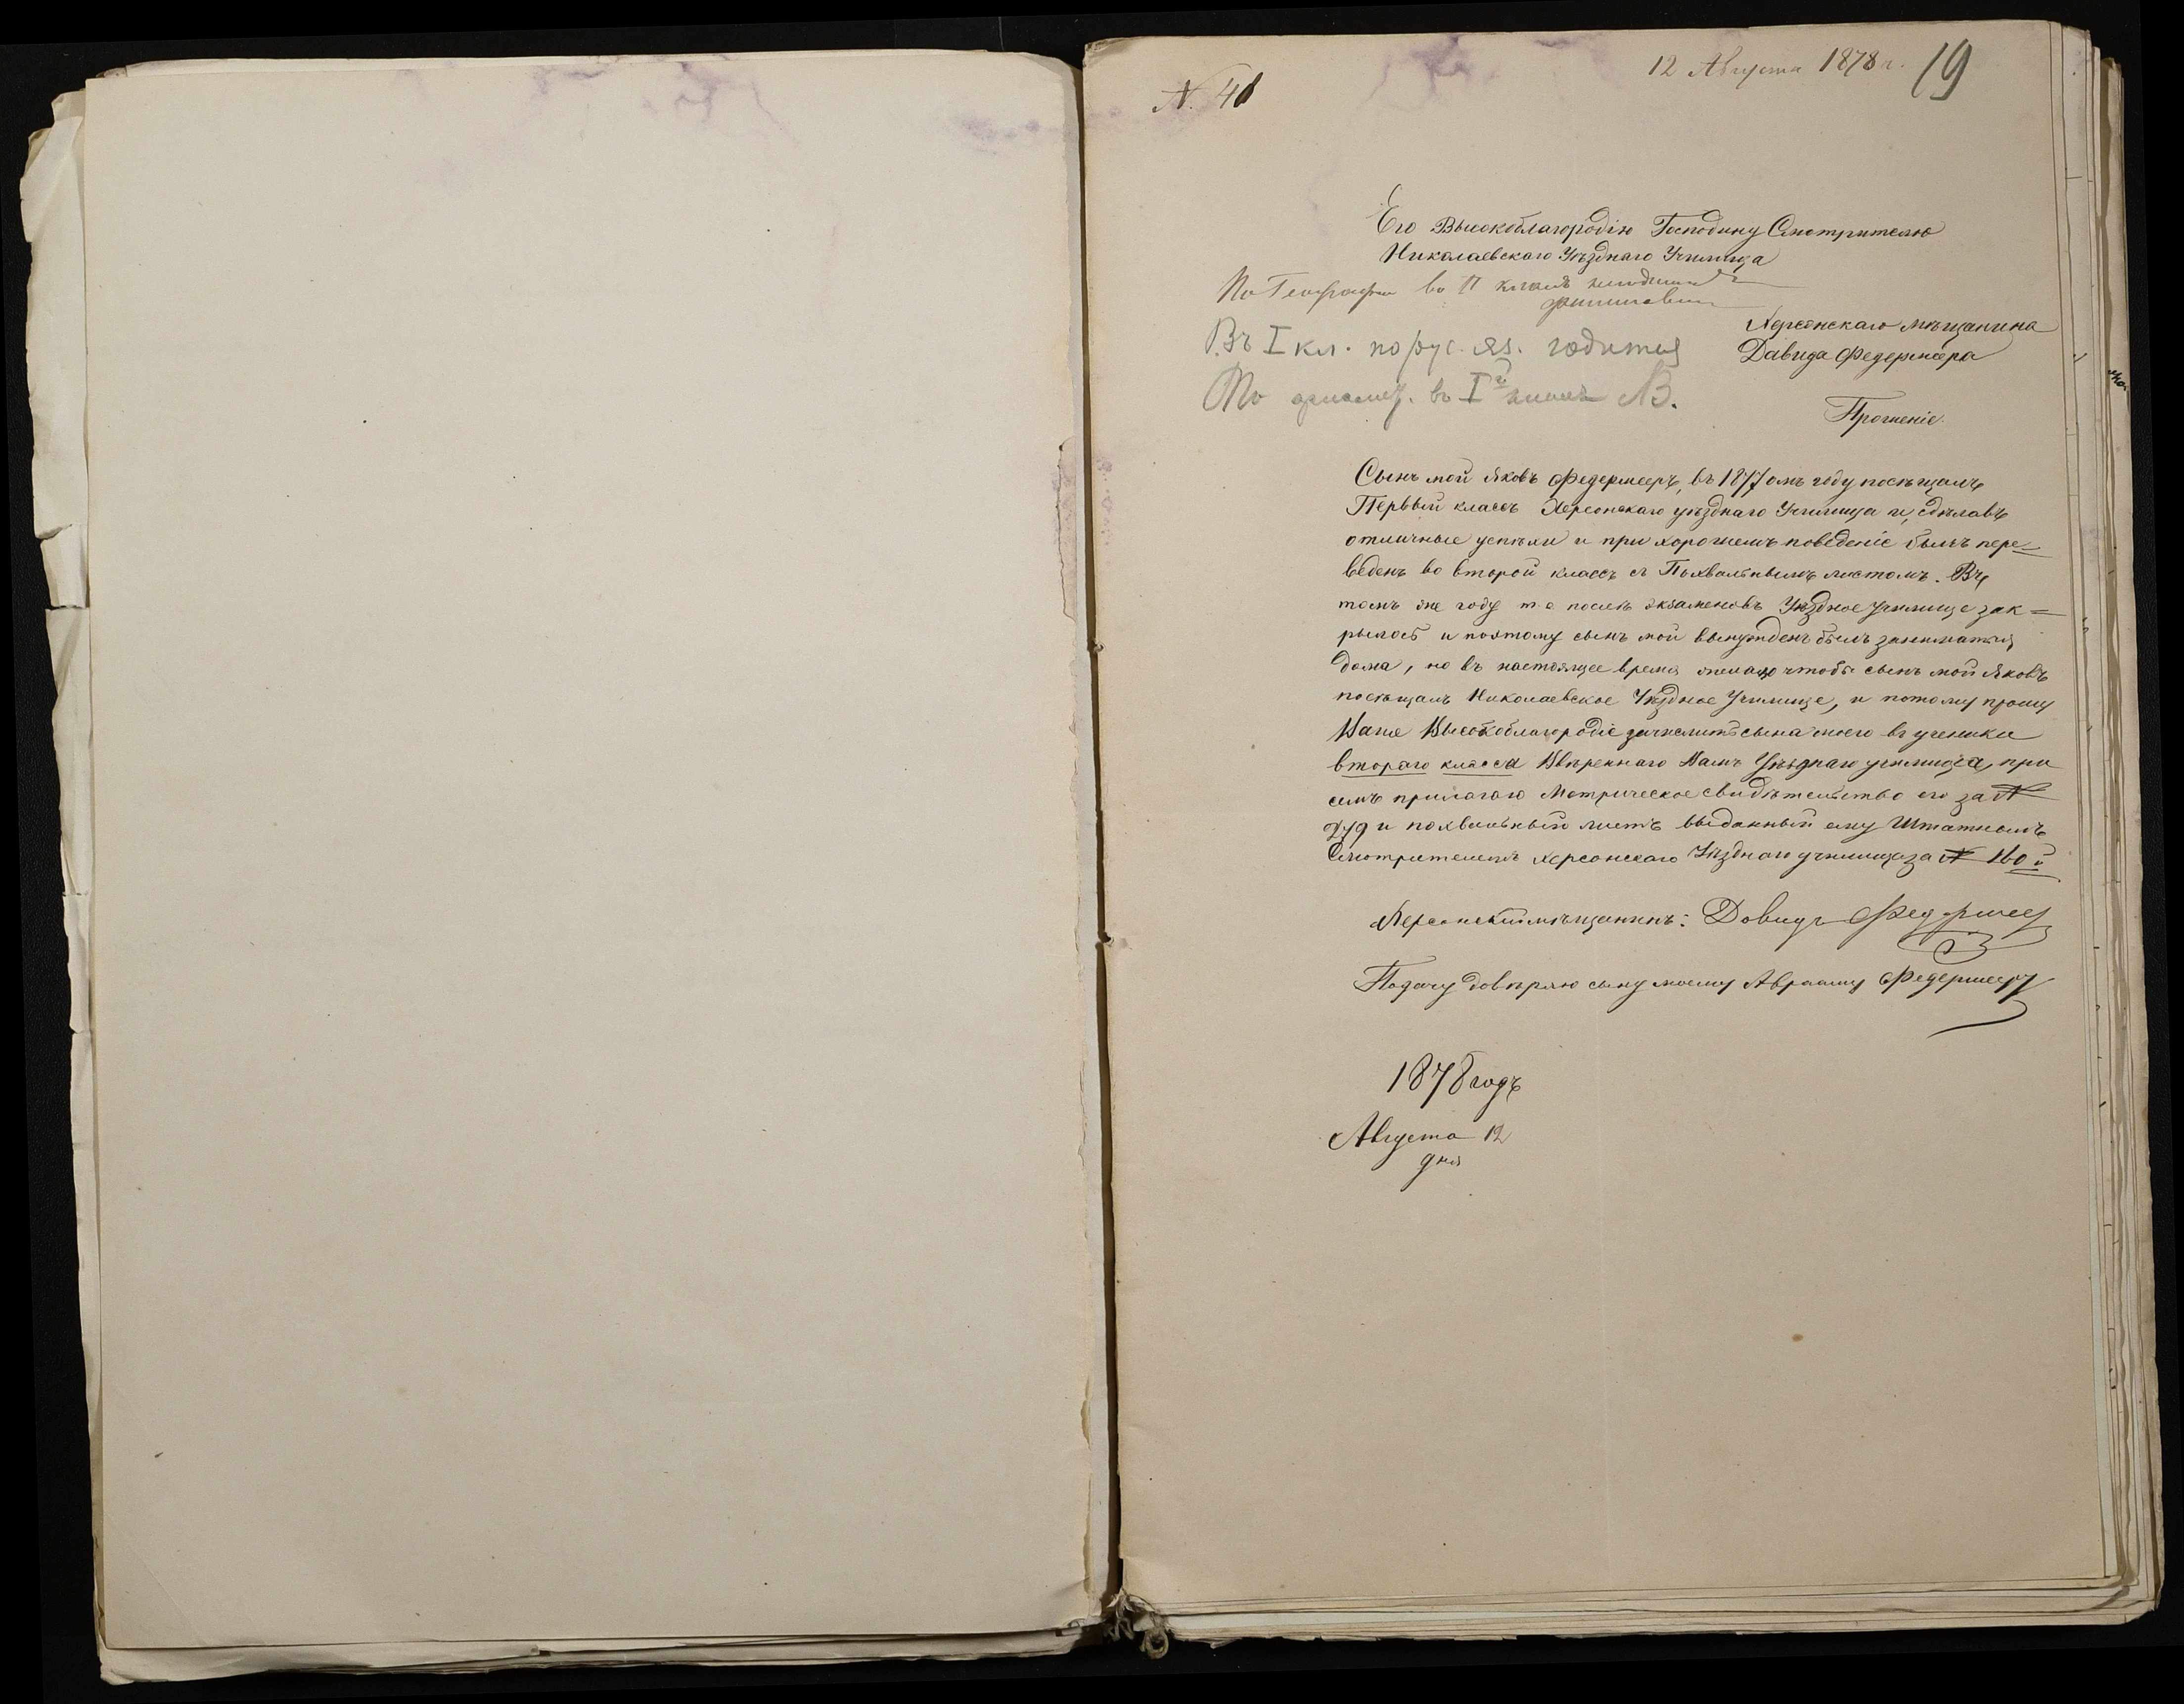 N. 48
12 Августа 1878 г. 19
Его Высокоблагородію Господину Смотрителю
Николаевскаго Уѣзднаго Училища
По Географіи во II классъ
Въ I кл. по рус. яз. годится
По ариѳмет. въ I классъ
Херсонскаго мѣщанина
Давида Федермеера
Прошеніе
Сынъ мой Яковъ Федермееръ, въ 1877омъ году посѣщалъ
Первый классъ Херсонскаго уѣзднаго Училища и, сдѣлавъ
отличные успѣхи и при хорошемъ поведеніе былъ пере=
веденъ во второй классъ съ Похвальнымъ листомъ. Въ
томъ же году т.е послѣ экзаменовъ Уѣздное училище зак=
рылось и поэтому сынъ мой вынужденъ былъ заниматься
дома, но въ настоящее время желаю чтобы сынъ мой Яковъ
посѣщалъ Николаевское Уѣздное Училище, и потому прошу
Ваше Высокоблагородіе зачислить сына моего въ ученики
втораго класса Ввѣреннаго Вамъ Уѣзднаго училища, при
семъ прилагаю Метрическое свидѣтельство его за N
и похвальный листъ выданный ему Штатнымъ
Смотрителемъ Херсонскаго Уѣзднаго училища за N 160й
Херсонскій мѣщанинъ: Довидъ Федермеер
Подачу довѣряю сыну моему Авраму Федермееру
1878 годъ
Августа 12
дня